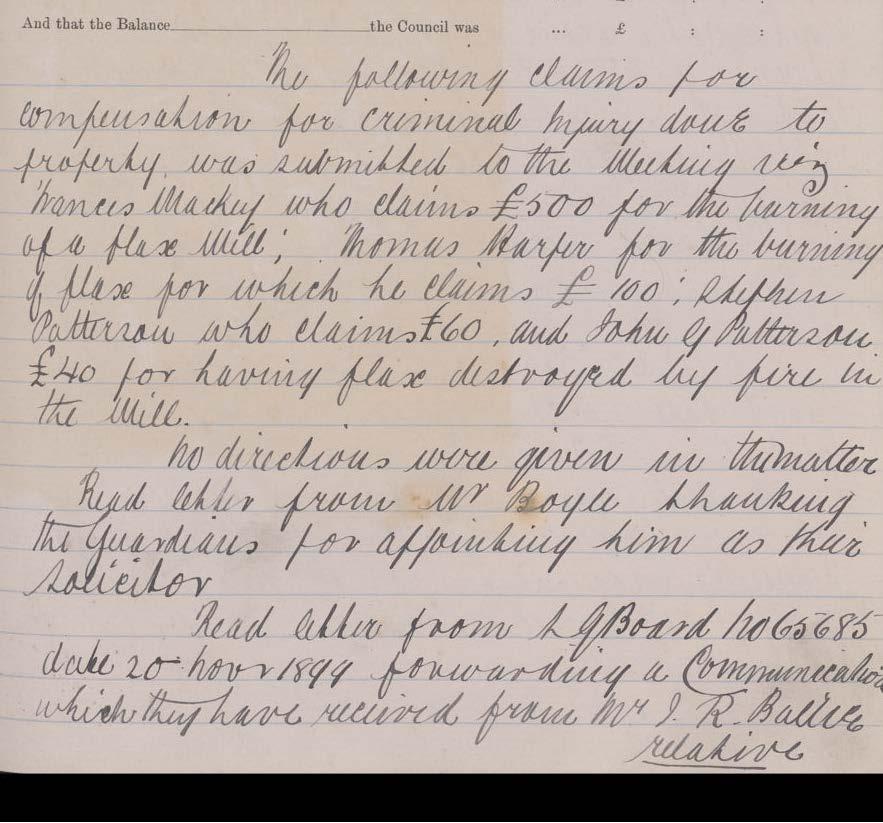 And that the Balance the Council was ... £ : :
The following claims for
compensation for criminal Injury done to
property, was submitted to the Meeting viz
Frances Mackey who claims £500 for the burning
of a flax Mill; Thomas Harper for the burning
of flax for which he claims £100; Stephen
Patterson who claims £60, and John G Patterson
£40 for having flax destroyed by fire in
the Mill.
No directions were given in the matter
Read letter from Mr Boyle thanking
the Guardians for appointing him as their
Solicitor
Read letter from L G Board No 65685
date 20 Novr 1899 forwarding a Communication
which they have received from Mr J. R.
relative